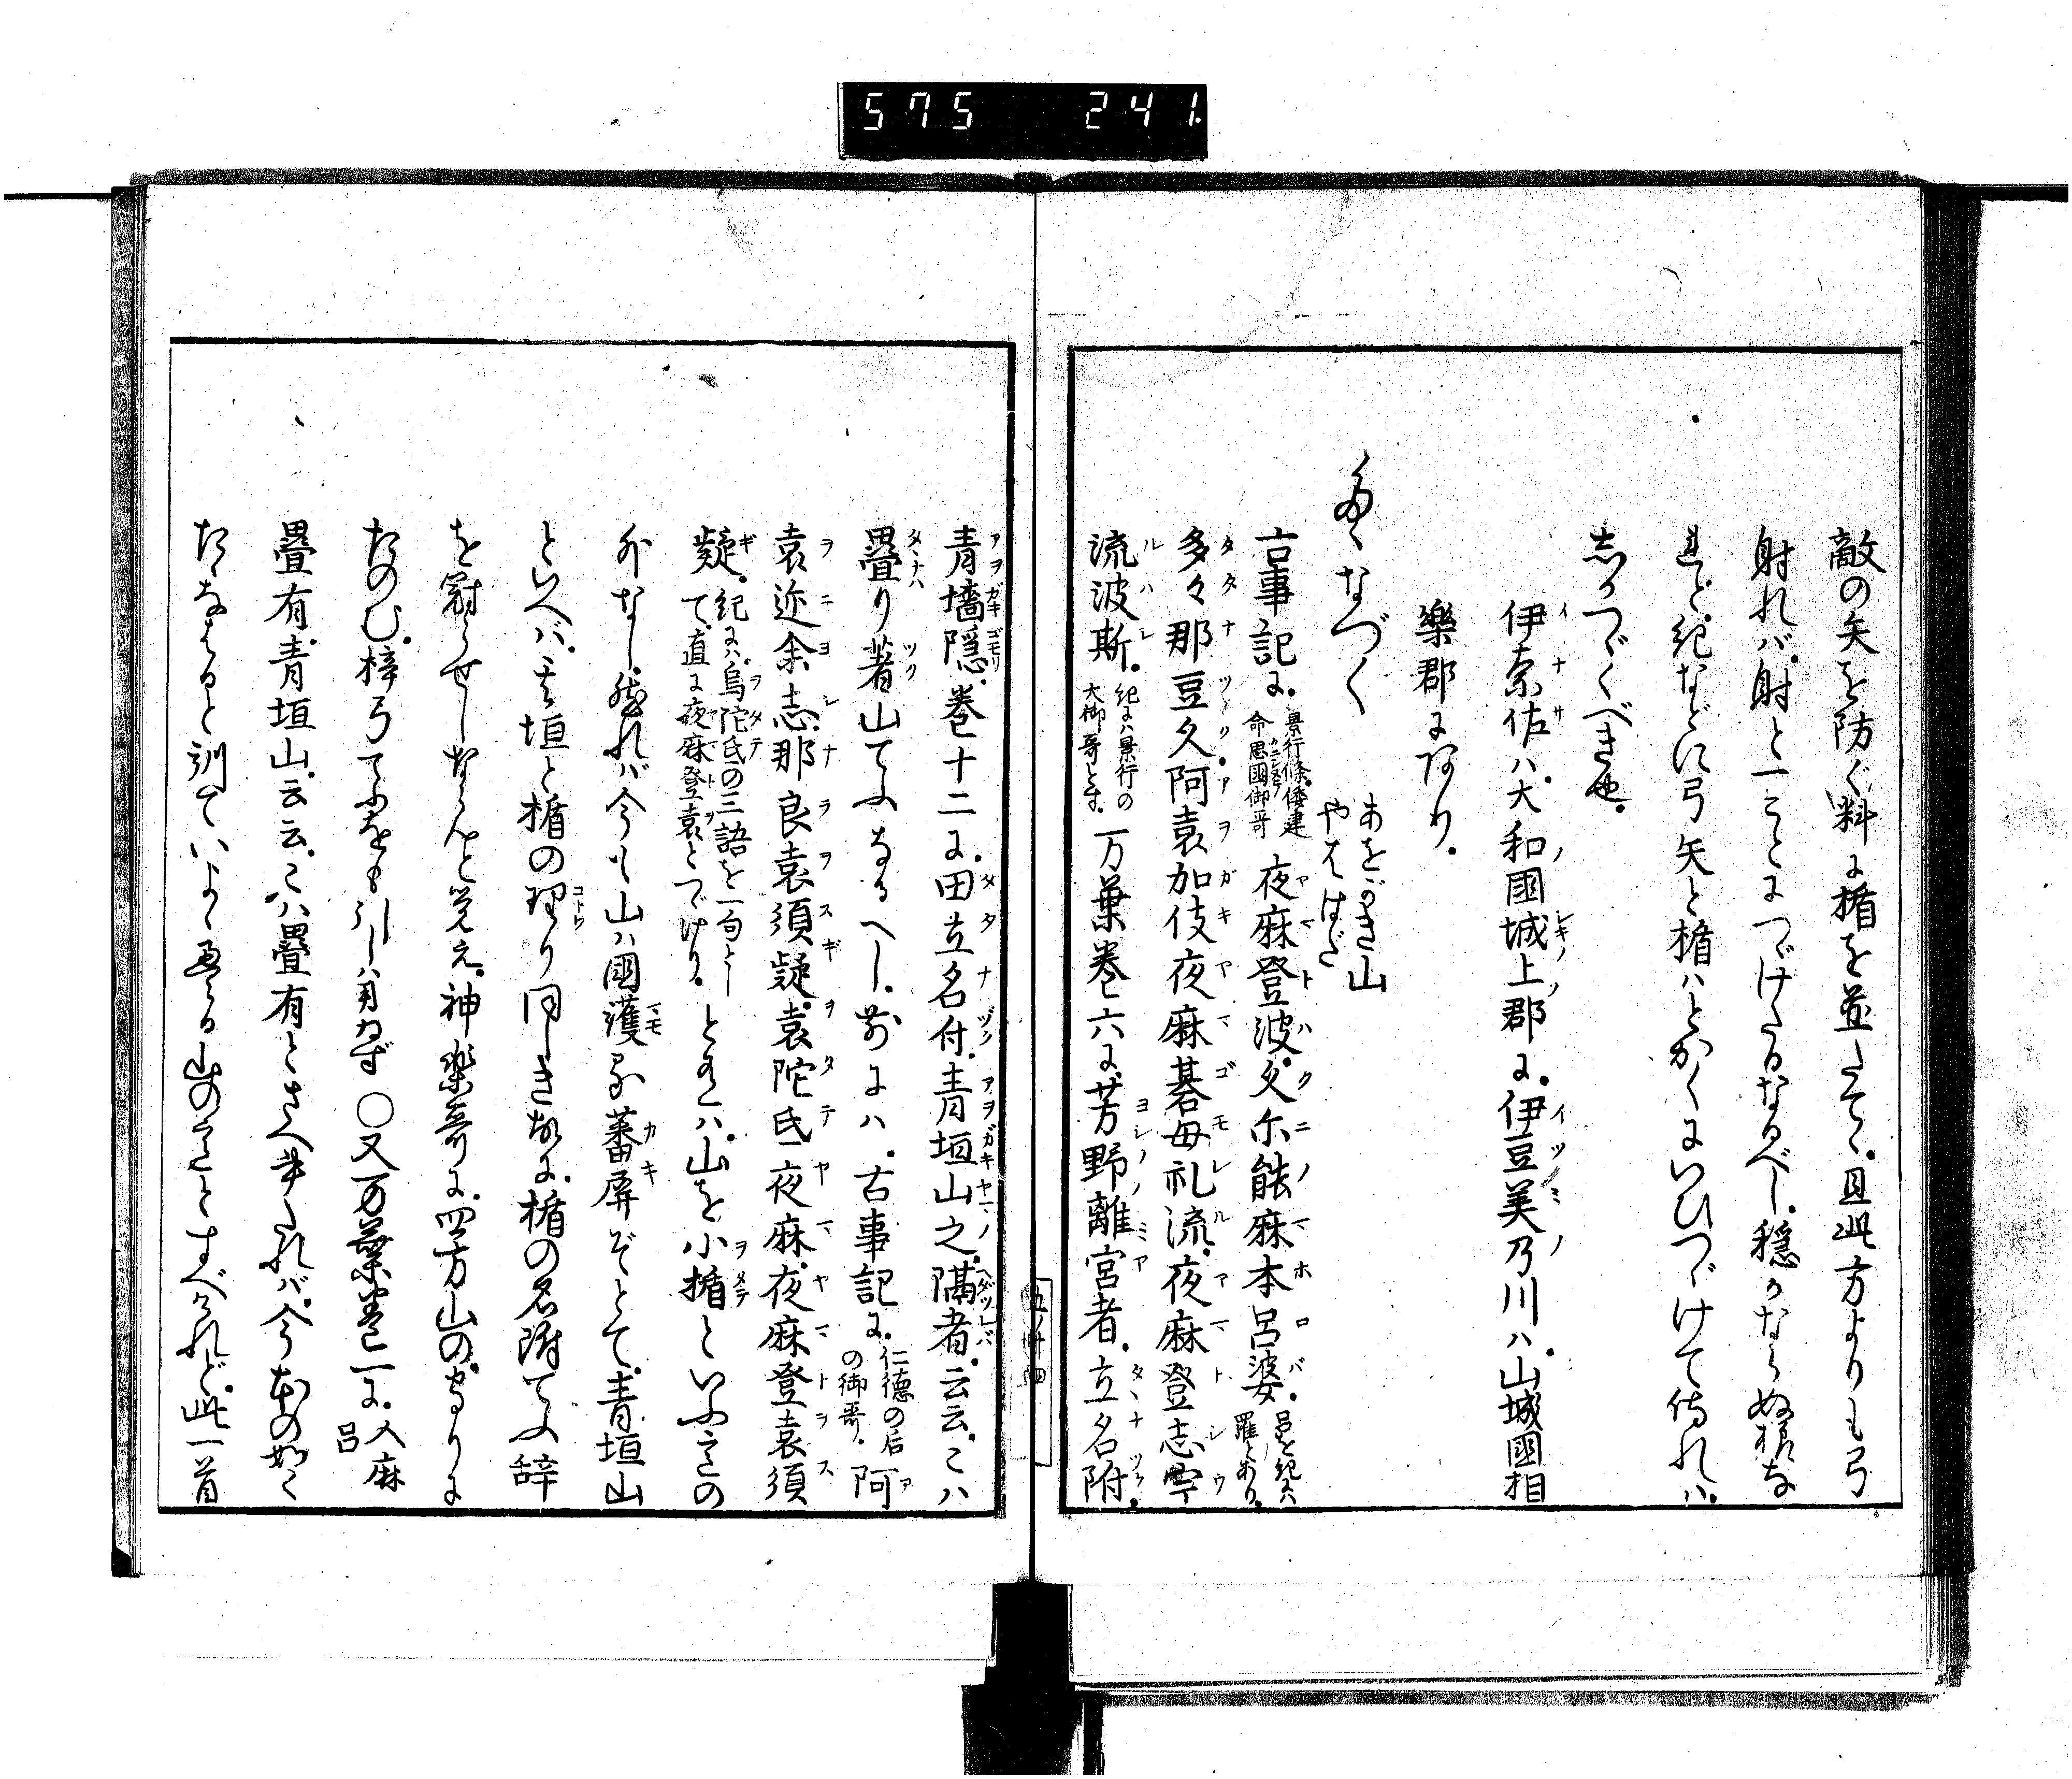 575 241.
敵の矢を防ぐ料に楯を並たてゝ且此方よりも弓
射れバ射と一ことにつゞけたるなるべし穏かならぬ様な
れど紀などに弓矢と楯ハとかくにいひつゞけて侍れハ
しかつゞくべき也
伊奈佐ハ大和國城上郡に伊豆美乃川ハ山城國相
樂郡にあり
たゝなづく
あをがき山
やはゝだ
古事記に景行條倭建命思國御哥夜麻登波久尓能麻本呂婆呂を紀にハ羅とあり
多々那豆久阿袁加伎夜麻碁母礼流夜麻登志宇
流波斯紀にハ景行の大御哥とす万葉巻六に芳野離宮者立名附
青墻隠巻十二に田立名付青垣山之隔者云云こハ
畳り著山てふなるへし前にハ古事記に仁徳の后の御哥阿
袁迩余志那良袁須疑袁陀氐夜麻夜麻登袁須
疑紀にハ烏陀氐の三語を一句として直に夜麻登袁とつゞけりとあるハ山を小楯といふ意の
外なし然れバ今も山ハ國護る蕃屏ぞとて青垣山
といへバ其垣と楯の理り同しき故に楯の名附てふ辞
を冠らせしならんと覚え神樂哥に四方山の守りに
たのむ梓弓てふをも引しハ用ゐず○又万葉巻一に人麻呂
畳有青垣山云云こハ畳有とさへ書たれバ今本の如く
たゝなはると訓ていよゝ畳る山の意とすべけれど此一首